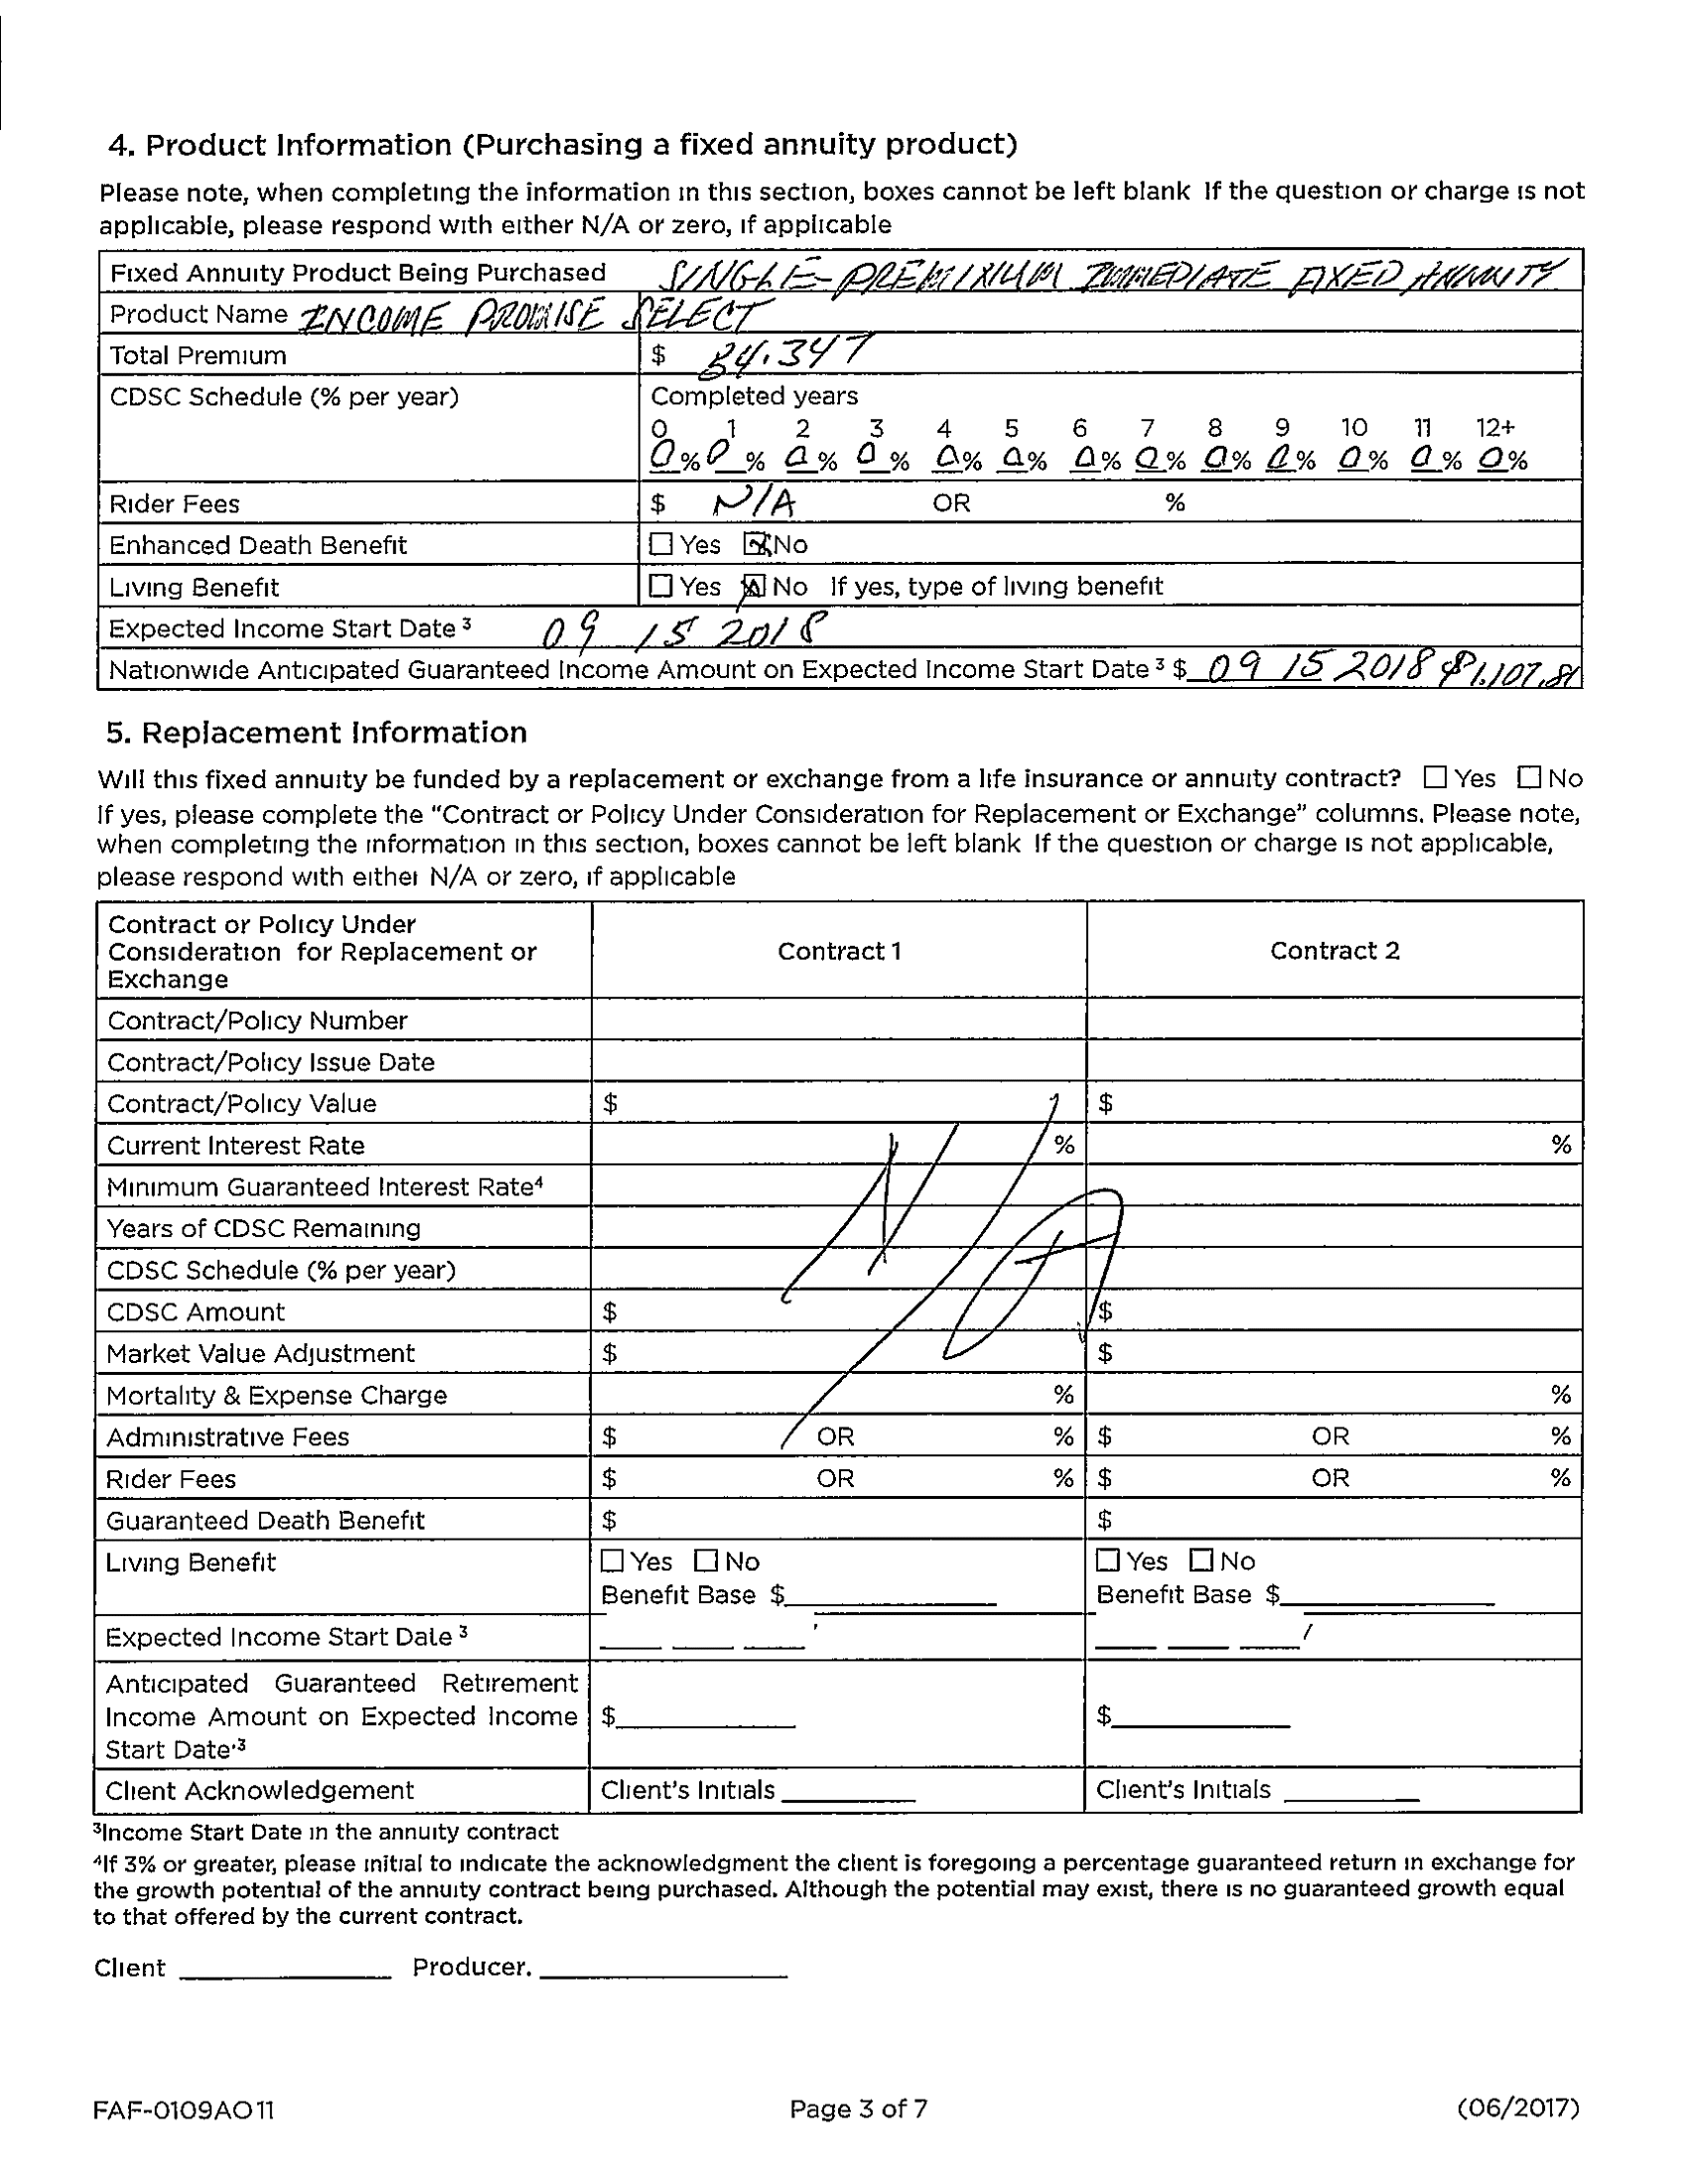 4. Product Information (Purchasing a fixed annuity product)
Please note, when completing the information in this section, boxes cannot be left blank If the question or charge is not
applicable, please respond with either N/A or zero, if applicable
Fixed Annuity Product Being Purchased SINGLE-PREMIXIUM IMMEDIATE FIXED ANNUITY
Product Name INCOME PROMISE SELECT
Total Premium $ 84.347
CDSC Schedule (% per year) Completed years
0 1 2 3 4 5 6 7 8 9 10 11 12+
0% 0% 0% 0% 0% 0% 0% 0% 0% 0% 0% 0% 0%
Rider Fees $ N/A OR %
Enhanced Death Benefit ☐ Yes ☒ No
Living Benefit ☐ Yes ☒ No If yes, type of living benefit
Expected Income Start Date ³ 09 15 2018
Nationwide Anticipated Guaranteed Income Amount on Expected Income Start Date ³ $ 09 15 2018 $1.107.81
5. Replacement Information
Will this fixed annuity be funded by a replacement or exchange from a life insurance or annuity contract? ☐ Yes ☐ No
If yes, please complete the "Contract or Policy Under Consideration for Replacement or Exchange" columns. Please note,
when completing the information in this section, boxes cannot be left blank If the question or charge is not applicable,
please respond with either N/A or zero, if applicable
Contract or Policy Under
Consideration for Replacement or
Exchange
Contract 1 Contract 2
Contract/Policy Number
Contract/Policy Issue Date
Contract/Policy Value $ $
Current Interest Rate % %
Minimum Guaranteed Interest Rate⁴
N/A
Years of CDSC Remaining
CDSC Schedule (% per year)
CDSC Amount $ $
Market Value Adjustment $ $
Mortality & Expense Charge % %
Administrative Fees $ OR % $ OR %
Rider Fees $ OR % $ OR %
Guaranteed Death Benefit $ $
Living Benefit ☐ Yes ☐ No ☐ Yes ☐ No
Benefit Base $ Benefit Base $
Expected Income Start Date ³
Anticipated Guaranteed Retirement
Income Amount on Expected Income $ $
Start Date·³
Client Acknowledgement Client's Initials Client's Initials
³Income Start Date in the annuity contract
⁴If 3% or greater, please initial to indicate the acknowledgment the client is foregoing a percentage guaranteed return in exchange for
the growth potential of the annuity contract being purchased. Although the potential may exist, there is no guaranteed growth equal
to that offered by the current contract.
Client Producer.
FAF-0109AO11 Page 3 of 7 (06/2017)